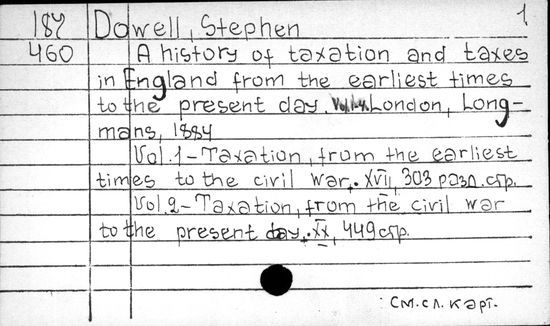 187 Dowell, Stephen 1
460 A history of taxation and taxes
in England from the earliest times
to the present day. Vol.1-4. London, Long-
mans, 1884
Vol.1-Taxation, from the earliest
times to the civil war. XVII, 303 разд.стр.
Vol.2-Taxation, from the civil war
to the present day. XX, 449 стр.
См.сл.карт.